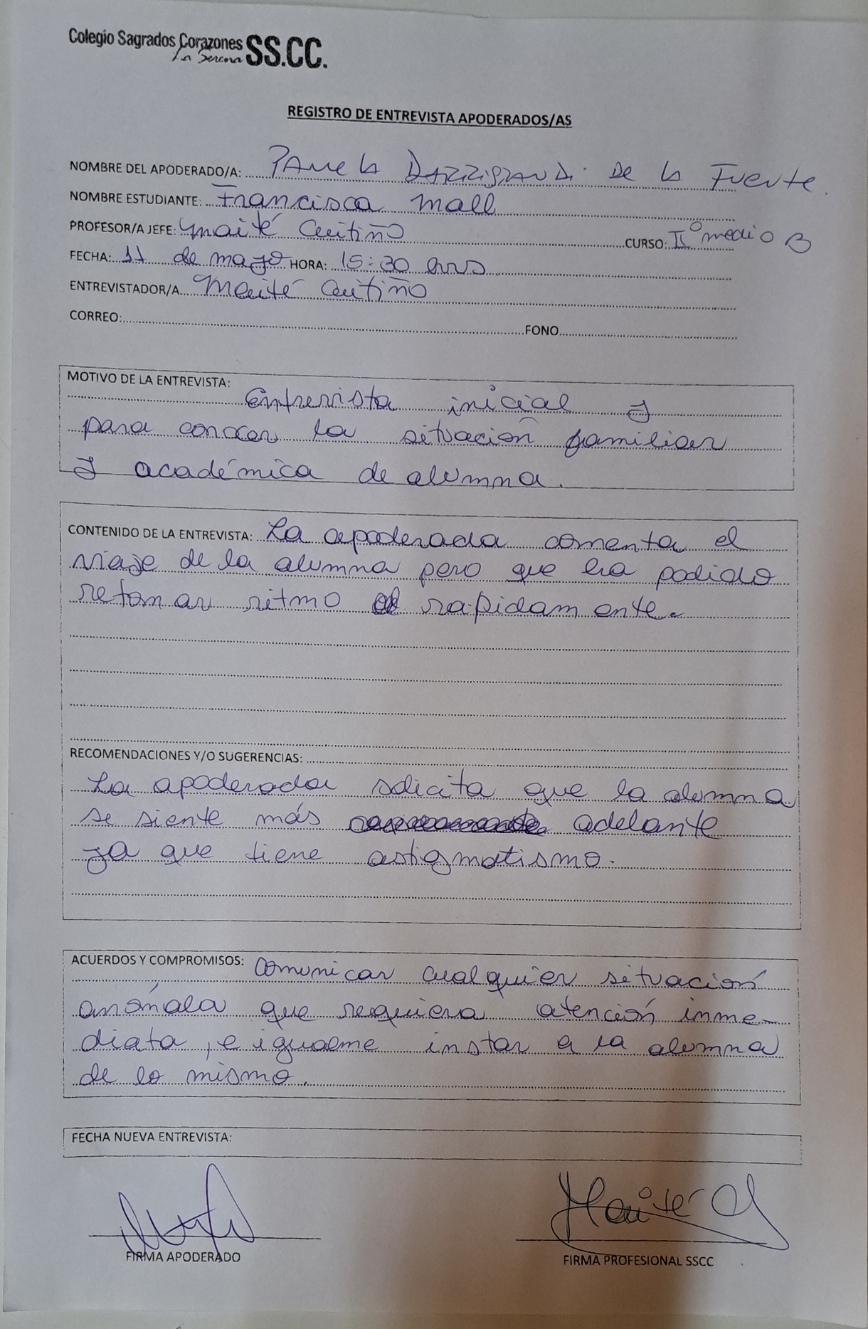 Colegio Sagrados Corazones SS.CC.
La Serena
REGISTRO DE ENTREVISTA APODERADOS/AS
NOMBRE DEL APODERADO/A: Pamela Dazzigrandi De la Fuente.
NOMBRE ESTUDIANTE: Francisca Mall
PROFESOR/A JEFE: Maité Cutiño CURSO: II° medio B
FECHA: 11 de mayo HORA: 15:30 hrs
ENTREVISTADOR/A Maité Cutiño
CORREO: FONO
MOTIVO DE LA ENTREVISTA:
Entrevista inicial y
para conocer la situación familiar
y académica de alumna.
CONTENIDO DE LA ENTREVISTA: La apoderada comenta el
viaje de la alumna pero que ha podido
retomar ritmo rapidamente.
RECOMENDACIONES Y/O SUGERENCIAS:
La apoderada solicita que la alumna
se siente más adelante
ya que tiene astigmatismo.
ACUERDOS Y COMPROMISOS: Comunicar cualquier situación
anómala que requiera atención inme-
diata, e igualme instar a la alumna
de lo mismo.
FECHA NUEVA ENTREVISTA:
Maité C
FIRMA APODERADO FIRMA PROFESIONAL SSCC